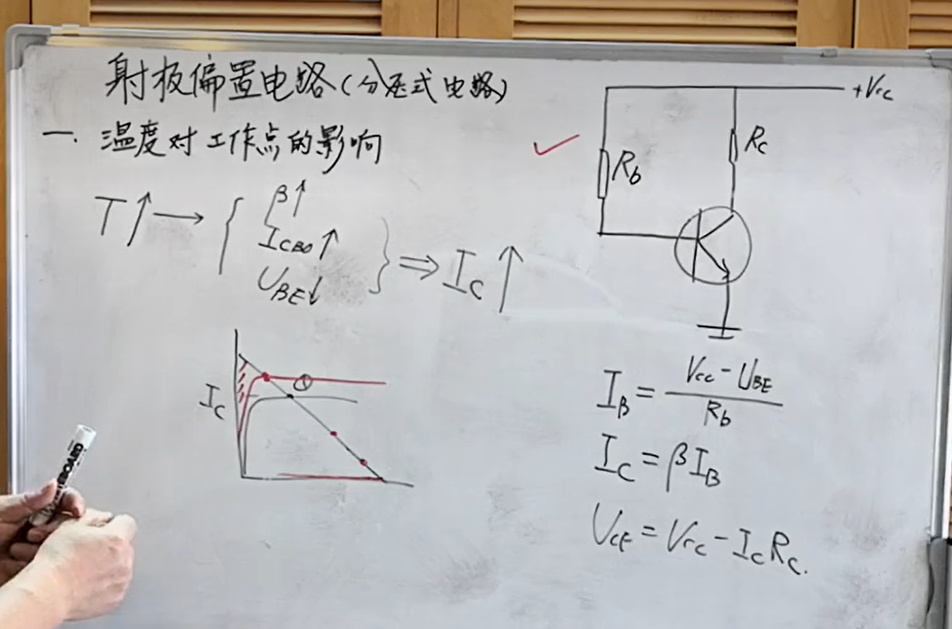 射极偏置电路(分压式电路)
一. 温度对工作点的影响
T↑→{ β↑ I_CBO↑ U_BE↓ } ⇒ I_C↑
I_C
①
+Vcc
Rb
Rc
I_B = (Vcc - U_BE) / R_b
I_C = βI_B
U_CE = Vcc - I_C R_C.
BOARD